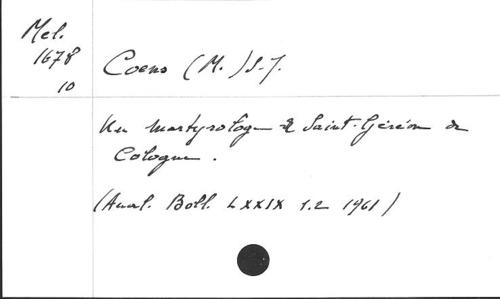 Mel.
1678
10
Coens (M.) S.J.
Un Martyrologe de Saint-Géréon de
Cologne.
(Anal. Boll. LXXIX 1.2 1961)